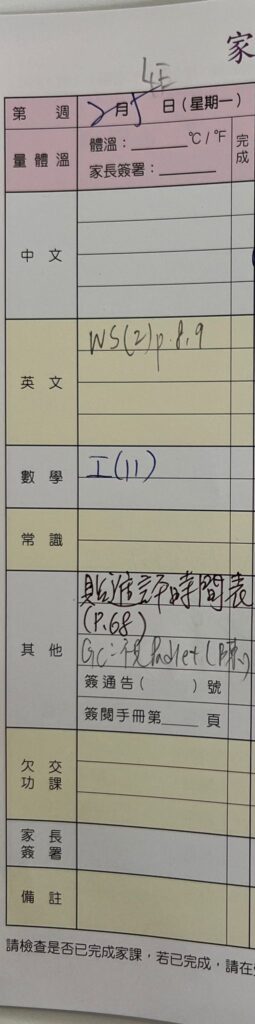 家
第 週 2月5日(星期一)
量體溫 體溫：______℃/℉ 完成
家長簽署：______
中 文
英 文 WS(2)p.8,9
數 學 工(11)
常 識
其 他 貼進評時間表
(P.68)
GC:視Padlet(
簽通告( )號
簽閱手冊第____頁
欠 交
功 課
家 長
簽 署
備 註
請檢查是否已完成家課，若已完成，請在